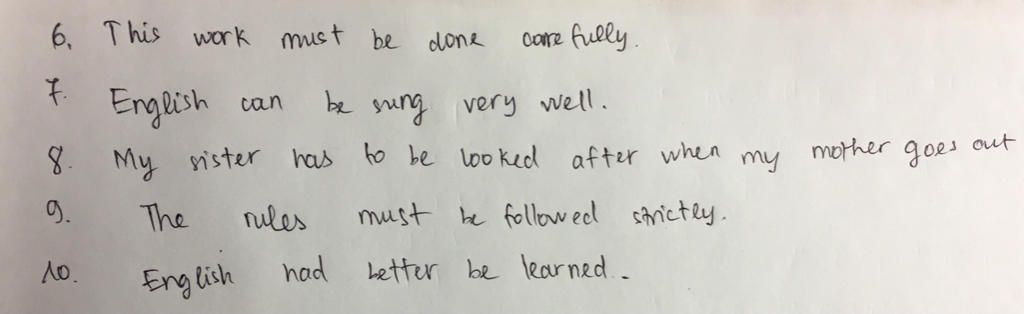 6. This work must be done carefully.
7. English can be sung very well.
8. My sister has to be looked after when my mother goes out
9. The rules must be followed strictly.
10. English had better be learned..